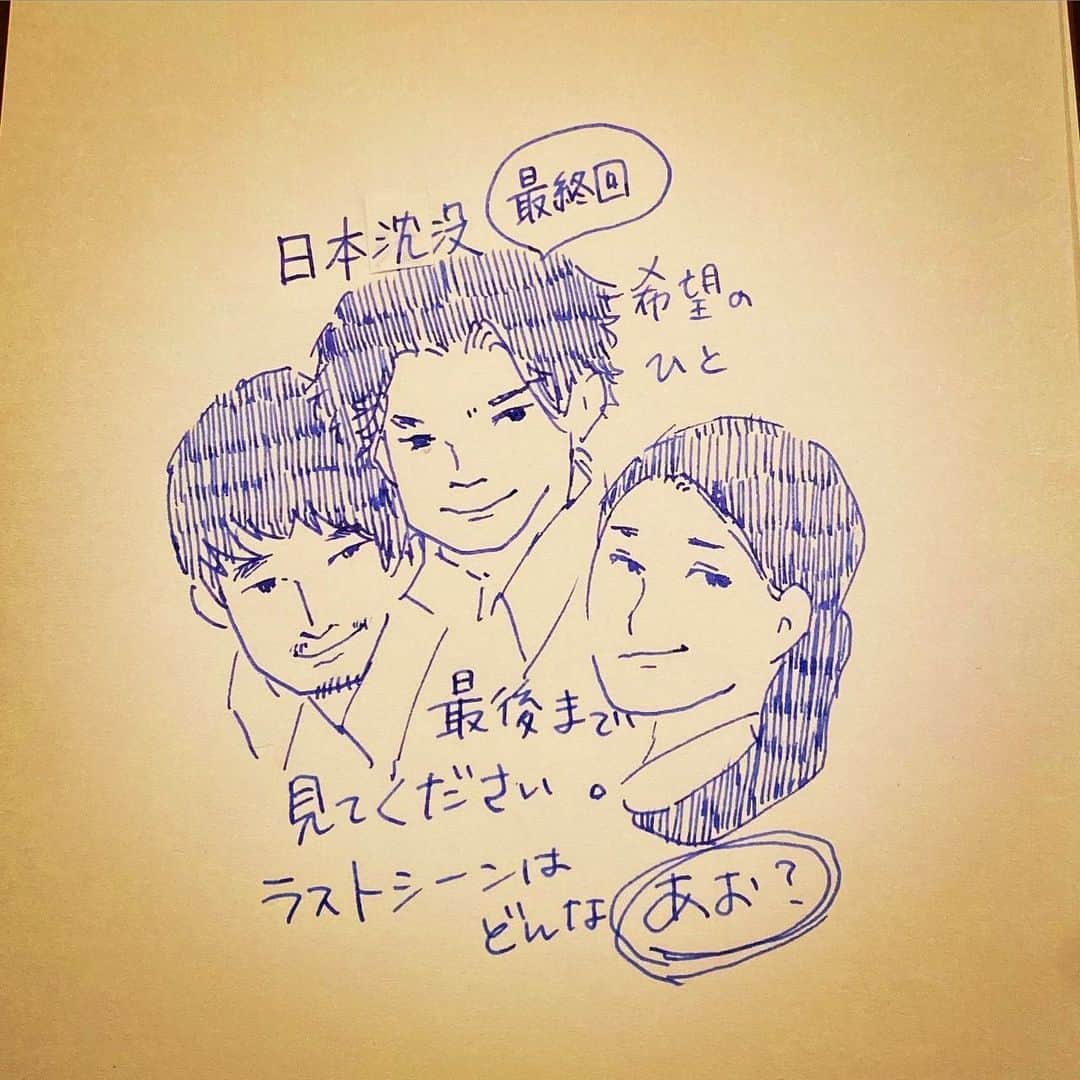 日本沈没
最終回
希望の
ひと
最後まで
見てください。
ラストシーンは
どんな
あお?